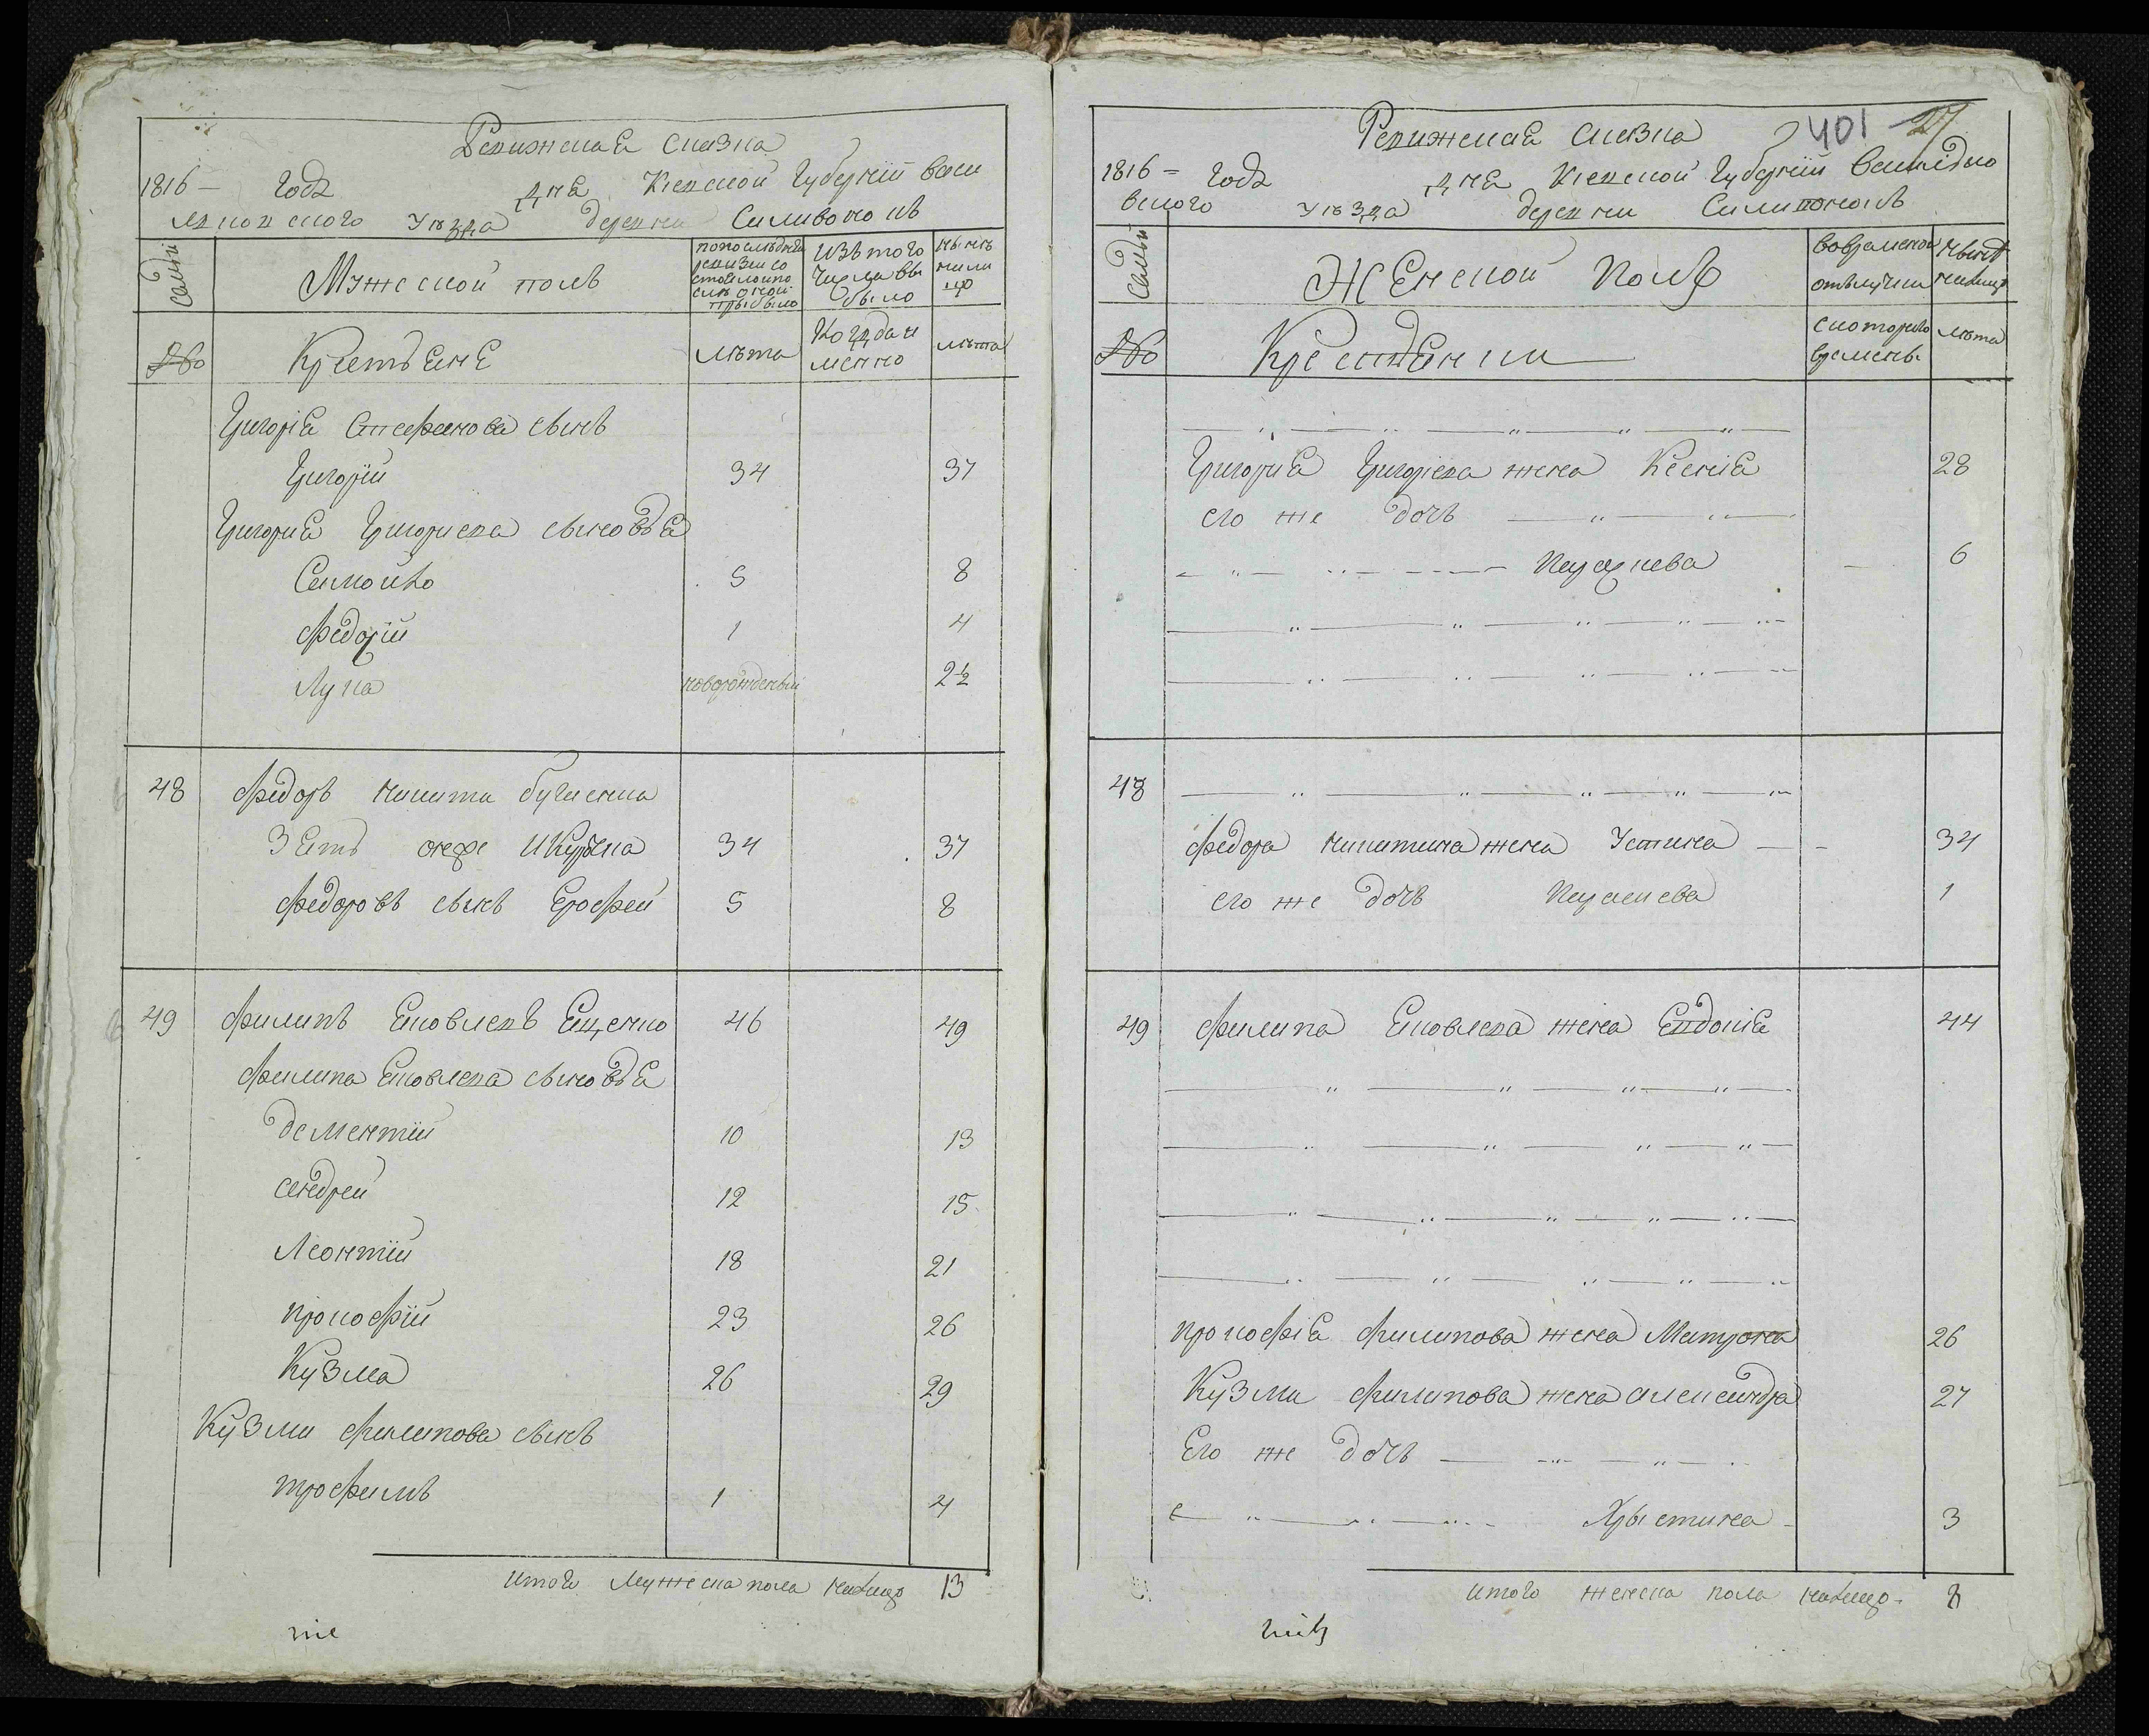 Ревижская сказка
1816 – Года Дня Киевской Губернии Васи
лковского Уезда деревни Саливонокъ
Самьи
Мужеской полъ
Изъ того
числа вы
было
№
Крестьяне
лѣта
Когда и
менно
лѣта
Григория Стефанова сынъ
Григорий 34 37
Григория Григориева сыновья
Самойло 5 8
Федорий 1 4
Лука новорожденый 2½
48 Федоръ никити
Зять онъ же 34 37
Федоровъ сынъ Ерофей 5 8
49 Филипъ Яковлевъ Ященко 46 49
Филипа Яковлева сыновья
дементий 10 13
андрей 12 15
Леонтий 18 21
прокофий 23 26
Кузма 26 29
Кузми Филипова сынъ
трофимъ 1 4
итого Мужеска пола налицо 13
Ревижская сказка 401 27
1816 – Года Дня Киевской Губернии Василко
вского Уезда деревни Саливонокъ
Самьи
Женской Полъ
Во временной
отлучки
Нынѣ
налицо
№
Крестьянки
с которого
времены
лѣта
Григория Григориева жена Ксения 28
его же дочь
Параскева 6
48
Федора никитина жена Устина 34
его же дочь Параскева 1
49 Филипа Яковлева жена Евдокия 44
прокофия Филипова жена Матрона 26
Кузми Филипова жена александра 27
Его же дочь
Хрыстина 3
итого женска пола налицо 8